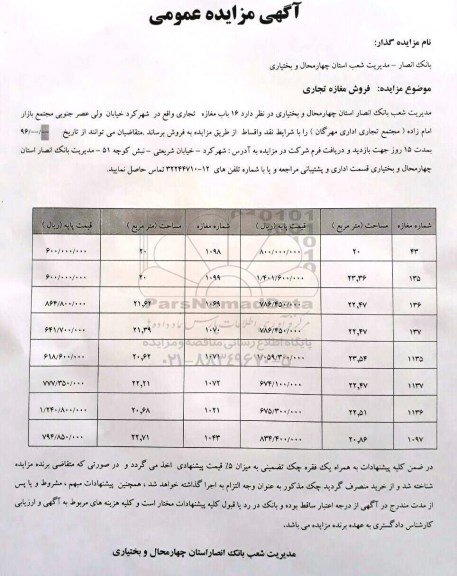 آگهی مزایده عمومی
نام مزایده گذار:
بانک انصار – مدیریت شعب استان چهارمحال و بختیاری
موضوع مزایده: فروش مغازه تجاری
مدیریت شعب بانک انصار استان چهارمحال و بختیاری در نظر دارد ۱۶ باب مغازه تجاری واقع در شهرکرد خیابان ولی عصر جنوبی مجتمع بازار
امام زاده ( مجتمع تجاری اداری مهرگان ) را با شرایط نقد واقساط از طریق مزایده به فروش برساند .متقاضیان می توانند از تاریخ ۹۶/۰۰/
بمدت ۱۵ روز جهت بازدید و دریافت فرم شرکت در مزایده به آدرس : شهرکرد – خیابان شریعتی – نبش کوچه ۵۱ – مدیریت بانک انصار استان
چهارمحال و بختیاری قسمت اداری و پشتیبانی مراجعه و یا با شماره تلفن های ۱۲-۳۲۲۴۴۷۱۰ تماس حاصل نمایید.
شماره مغازه مساحت (متر مربع ) قیمت پایه (ریال) شماره مغازه مساحت (متر مربع ) قیمت پایه (ریال)
۴۳ ۲۰ ۸۰۰/۰۰۰/۰۰۰ ۱۰۹۸ ۲۰ ۶۰۰/۰۰۰/۰۰۰
۱۳۵ ۲۳,۳۶ ۱/۴۰۱/۶۰۰/۰۰۰ ۱۰۹۹ ۲۰ ۶۰۰/۰۰۰/۰۰۰
۱۳۶ ۲۲,۴۷ ۷۸۶/۴۵۰/۰۰۰ ۱۰۶۹ ۲۱,۶۲ ۸۶۴/۸۰۰/۰۰۰
۱۳۷ ۲۲,۴۷ ۷۸۶/۴۵۰/۰۰۰ ۱۰۷۰ ۲۱,۳۹ ۶۴۱/۷۰۰/۰۰۰
۱۱۳۵ ۲۳,۵۴ ۱/۰۵۹/۳۰۰/۰۰۰ ۱۰۷۱ ۲۰,۶۲ ۶۱۸/۶۰۰/۰۰۰
۱۱۳۷ ۲۲,۴۷ ۶۷۴/۱۰۰/۰۰۰ ۱۰۷۲ ۲۲,۲۱ ۷۷۷/۳۵۰/۰۰۰
۱۱۳۶ ۲۲,۵۱ ۶۷۵/۳۰۰/۰۰۰ ۱۰۲۱ ۲۰,۶۸ ۱/۲۴۰/۸۰۰/۰۰۰
۱۰۹۷ ۲۰,۸۶ ۸۳۴/۴۰۰/۰۰۰ ۱۰۴۳ ۲۲,۷۱ ۷۹۴/۸۵۰/۰۰۰
ParsNamadData
پایگاه اطلاع رسانی مناقصه و مزایده
۰۲۱-۸۸۳۴۹۶۷۰-۵
در ضمن کلیه پیشنهادات به همراه یک فقره چک تضمینی به میزان ۵٪ قیمت پیشنهادی اخذ می گردد و در صورتی که متقاضی برنده مزایده
شناخته شد و از خرید منصرف گردید چک مذکور به عنوان وجه التزام به اجرا گذاشته خواهد شد ، همچنین پیشنهادات مبهم ، مشروط و یا پس
از مدت مندرج در آگهی از درجه اعتبار ساقط بوده و بانک در رد یا قبول کلیه پیشنهادات مختار است و کلیه هزینه های مربوط به آگهی و ارزیابی
کارشناس دادگستری به عهده برنده مزایده می باشد.
مدیریت شعب بانک انصاراستان چهارمحال و بختیاری